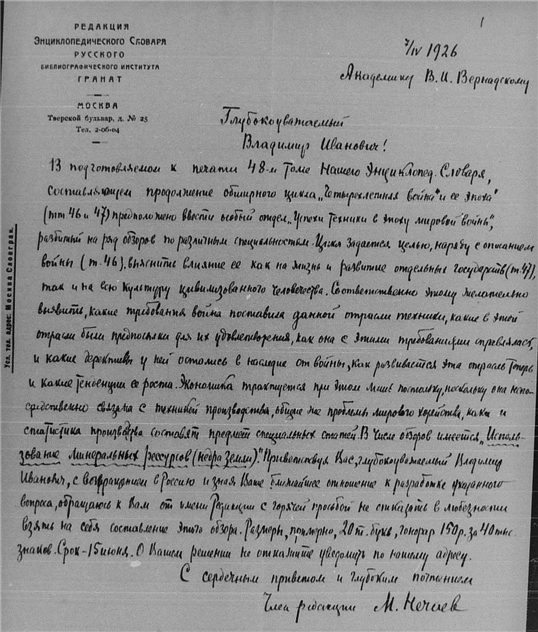 1
РЕДАКЦИЯ
ЭНЦИКЛОПЕДИЧЕСКОГО СЛОВАРЯ
РУССКОГО
БИБЛИОГРАФИЧЕСКОГО ИНСТИТУТА
ГРАНАТ
МОСКВА
Тверской бульвар, д. № 25
Тел. 2-06-04
7/IV 1926
Академику В. И. Вернадскому
Глубокоуважаемый
Владимир Иванович!
В подготовляемом к печати 48-м томе Нашего Энциклопед. Словаря,
составляющем продолжение обширного цикла „Четырехлетняя война" и ее эпоха"
(тт. 46 и 47) предположено ввести особый отдел „Успехи техники в эпоху мировой войны",
разбитый на ряд обзоров по различным специальностям. Цикл задается целью, наряду с описанием
войны (т. 46), выяснить влияние ее как на жизнь и развитие отдельных государств (т. 47),
так и на всю культуру цивилизованного человечества. Соответственно этому желательно
выявить, какие требования война поставила данной отрасли техники, какие в этой
отрасли были предпосылки для их удовлетворения, как она с этими требованиями справлялась,
и какие у ней остались в наследие от войны, как развивается эта отрасль теперь
и какие тенденции ее роста. Экономика трактуется при этом лишь постольку, поскольку она непо-
средственно связана с техникой производства, общие же проблемы мирового хозяйства, как и
статистика производства составят предмет специальных статей. В числе обзоров имеется „Исполь-
зование минеральных рессурсов (недра земли)". Приветствуя Вас, глубокоуважаемый Владимир
Иванович, с возвращением в Россию и зная Ваше ближайшее отношение к разработке указанного
вопроса, обращаюсь к Вам от имени Редакции с горячей просьбой не отказать в любезности
взять на себя составление этого обзора. Размеры, примерно, 20 т. букв, гонорар 150 р. за 40 тыс.
знаков. Срок - 15 июня. О Вашем решении не откажите уведомить по нашему адресу.
С сердечным приветом и глубоким почтением
Член редакции М. Нечаев
Тел. адрес: Москва Словогран.